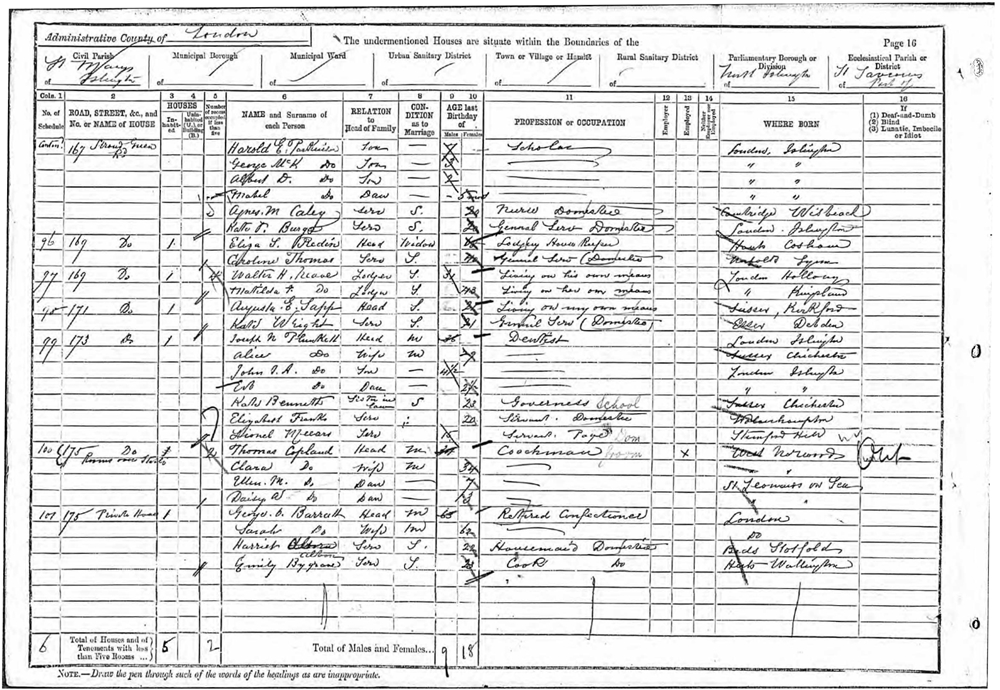 Administrative County of London
The undermentioned Houses are situate within the Boundaries of the
Page 16
Civil Parish Municipal Borough Municipal Ward Urban Sanitary District Town or Village or Hamlet Rural Sanitary District Parliamentary Borough or Division Ecclesiastical Parish or District
of St Marys Islington of of of of of of North Islington of St Saviours
Cols. 1 2 3 4 5 6 7 8 9 10 11 12 13 14 15 16
No. of Schedule ROAD, STREET, &c., and No. or NAME of HOUSE HOUSES Inhabited Uninhabited (U.), or Building (B.) Number of rooms occupied if less than five NAME and Surname of each Person RELATION to Head of Family CONDITION as to Marriage AGE last Birthday of Males Females PROFESSION or OCCUPATION Employer Employed Neither Employer nor Employed WHERE BORN If (1) Deaf-and-Dumb (2) Blind (3) Lunatic, Imbecile or Idiot
167 Stroud Green Rd Harold E. Son Scholar London, Islington
George McK Do Son " "
Albert D. Do Son " "
Mabel Do Daur " "
Agnes M Caley Serv S. Nurse Domestic Cambridge Wisbeach
Kate Serv S. General Serv Domestic London. Islington
96 169 Do 1 Eliza S. Head Widow Lodging House Keeper Hants Cosham
Caroline Thomas Serv S. General Serv (Domestic) Norfolk Lynn
97 169 Do 1 Walter H. Neave Lodger S. 31 Living on his own means London Holloway
Matilda F. Do Lodger S. 43 Living on her own means " Kingsland
98 171 Do 1 Augusta E. Sapp Head S. Living on my own means Sussex, Kirdford
Kate Wright Serv S. 21 General Serv (Domestic) Essex Debden
99 173 Do 1 Joseph N Plunkett Head M Dentist London Islington
Alice Do Wife M Sussex Chichester
John J. A. Do Son London Islington
Do Daur " "
Kate Bennett Sister in Law S 23 Governess School Sussex Chichester
Elizabeth Serv 20 Servant. Domestic Wolverhampton
Lionel Meears Serv 15 Servant. Page Dom Stamford Hill
100 175 Do Rooms over Stables 1 2 Thomas Copland Head M Coachman Groom X West Norwood
Clara Do Wife M 34 "
Ellen M. Do Daur 7 St Leonards on Sea
Daisy A Do Daur "
101 175 Private House 1 George C. Barratt Head M 65 Retired Confectioner London
Sarah Do Wife M 62 Do
Harriet Albon Serv S. 22 Housemaid Domestic Beds Stotfold
Emily Bygrave Serv S. 23 Cook Do Herts Wallington
6 Total of Houses and of Tenements with less than Five Rooms ...} 5 2 Total of Males and Females... 9 18
NOTE.—Draw the pen through such of the words of the headings as are inappropriate.